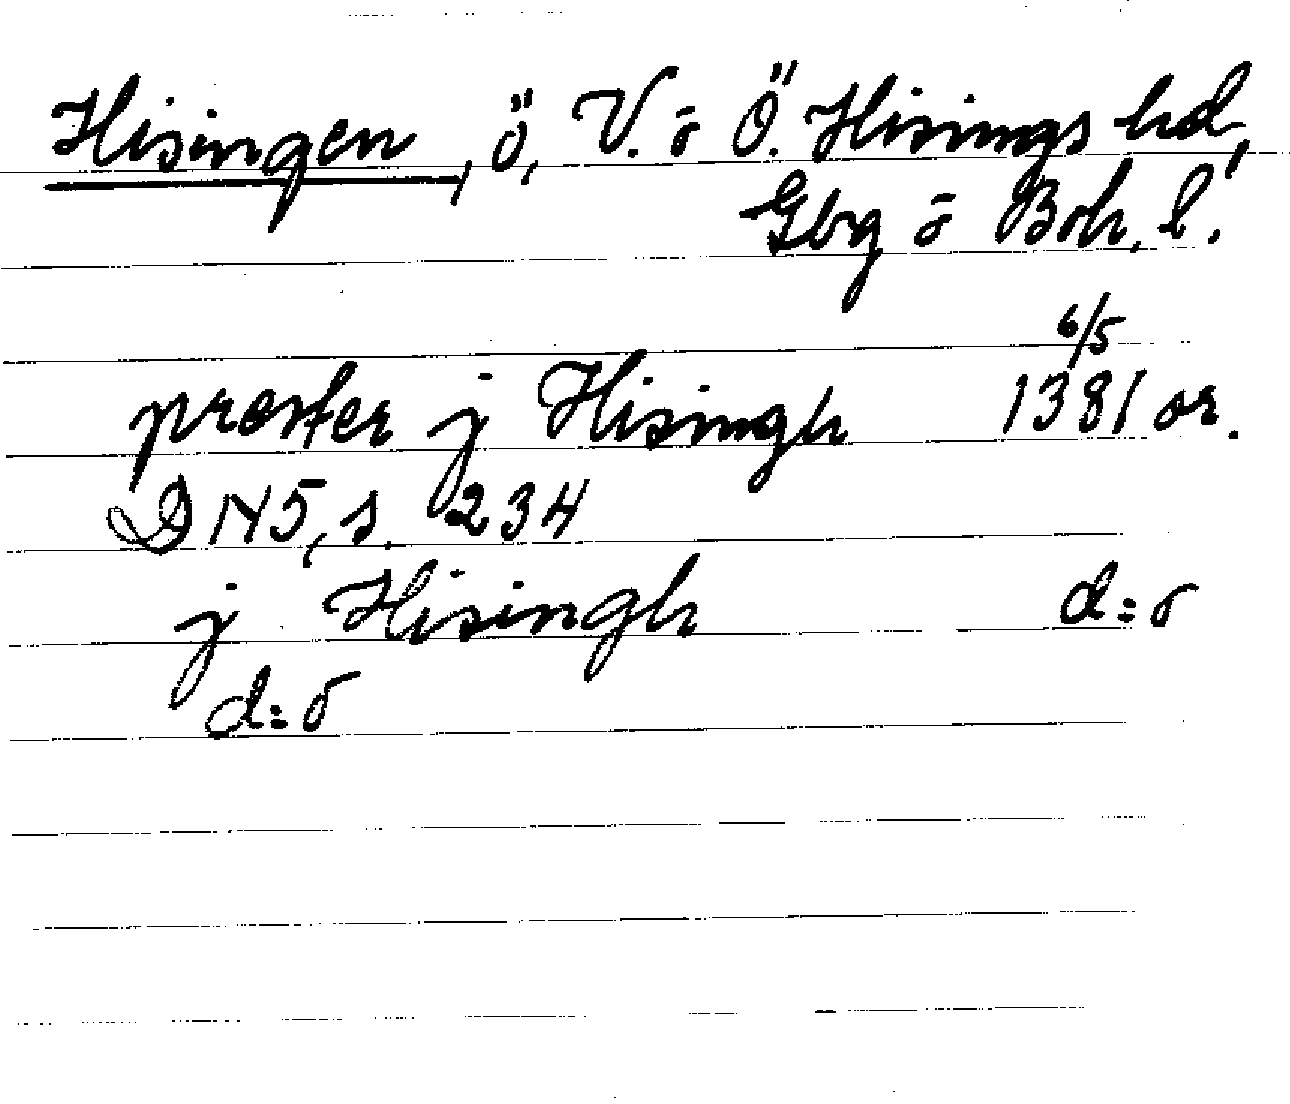 Hisingen, ö, V. o Ö. Hisings hd,
Gbg o Boh. l.
6/5
prester j Hisingh 1381 or.
DN 5, s. 234
j Hisingh d:o
d:o